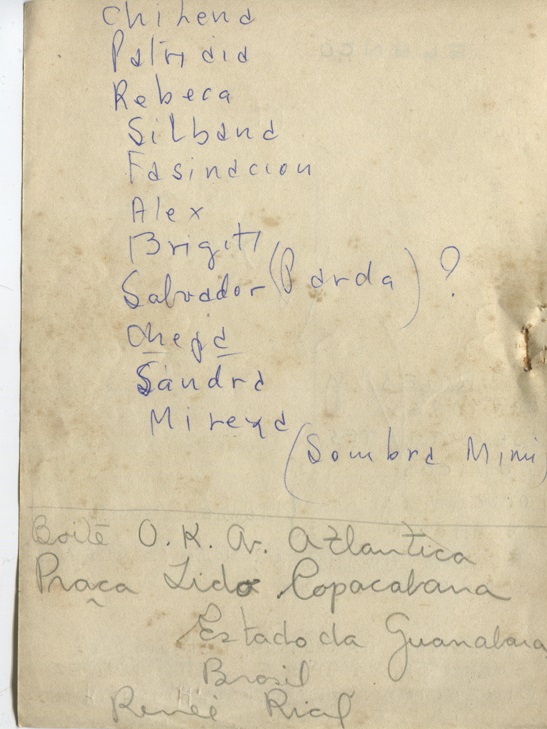 Chilena
Patricia
Rebeca
Silbana
Fasinacion
Alex
Brigitt
Salvador (Parda) ?
Chepa
Sandra
Mireya
(Sombra Mimi)
Boite O.K. Av. Atlantica
Praça Lido Copacabana
Estado da Guanabara
Brasil
Reneé Rial